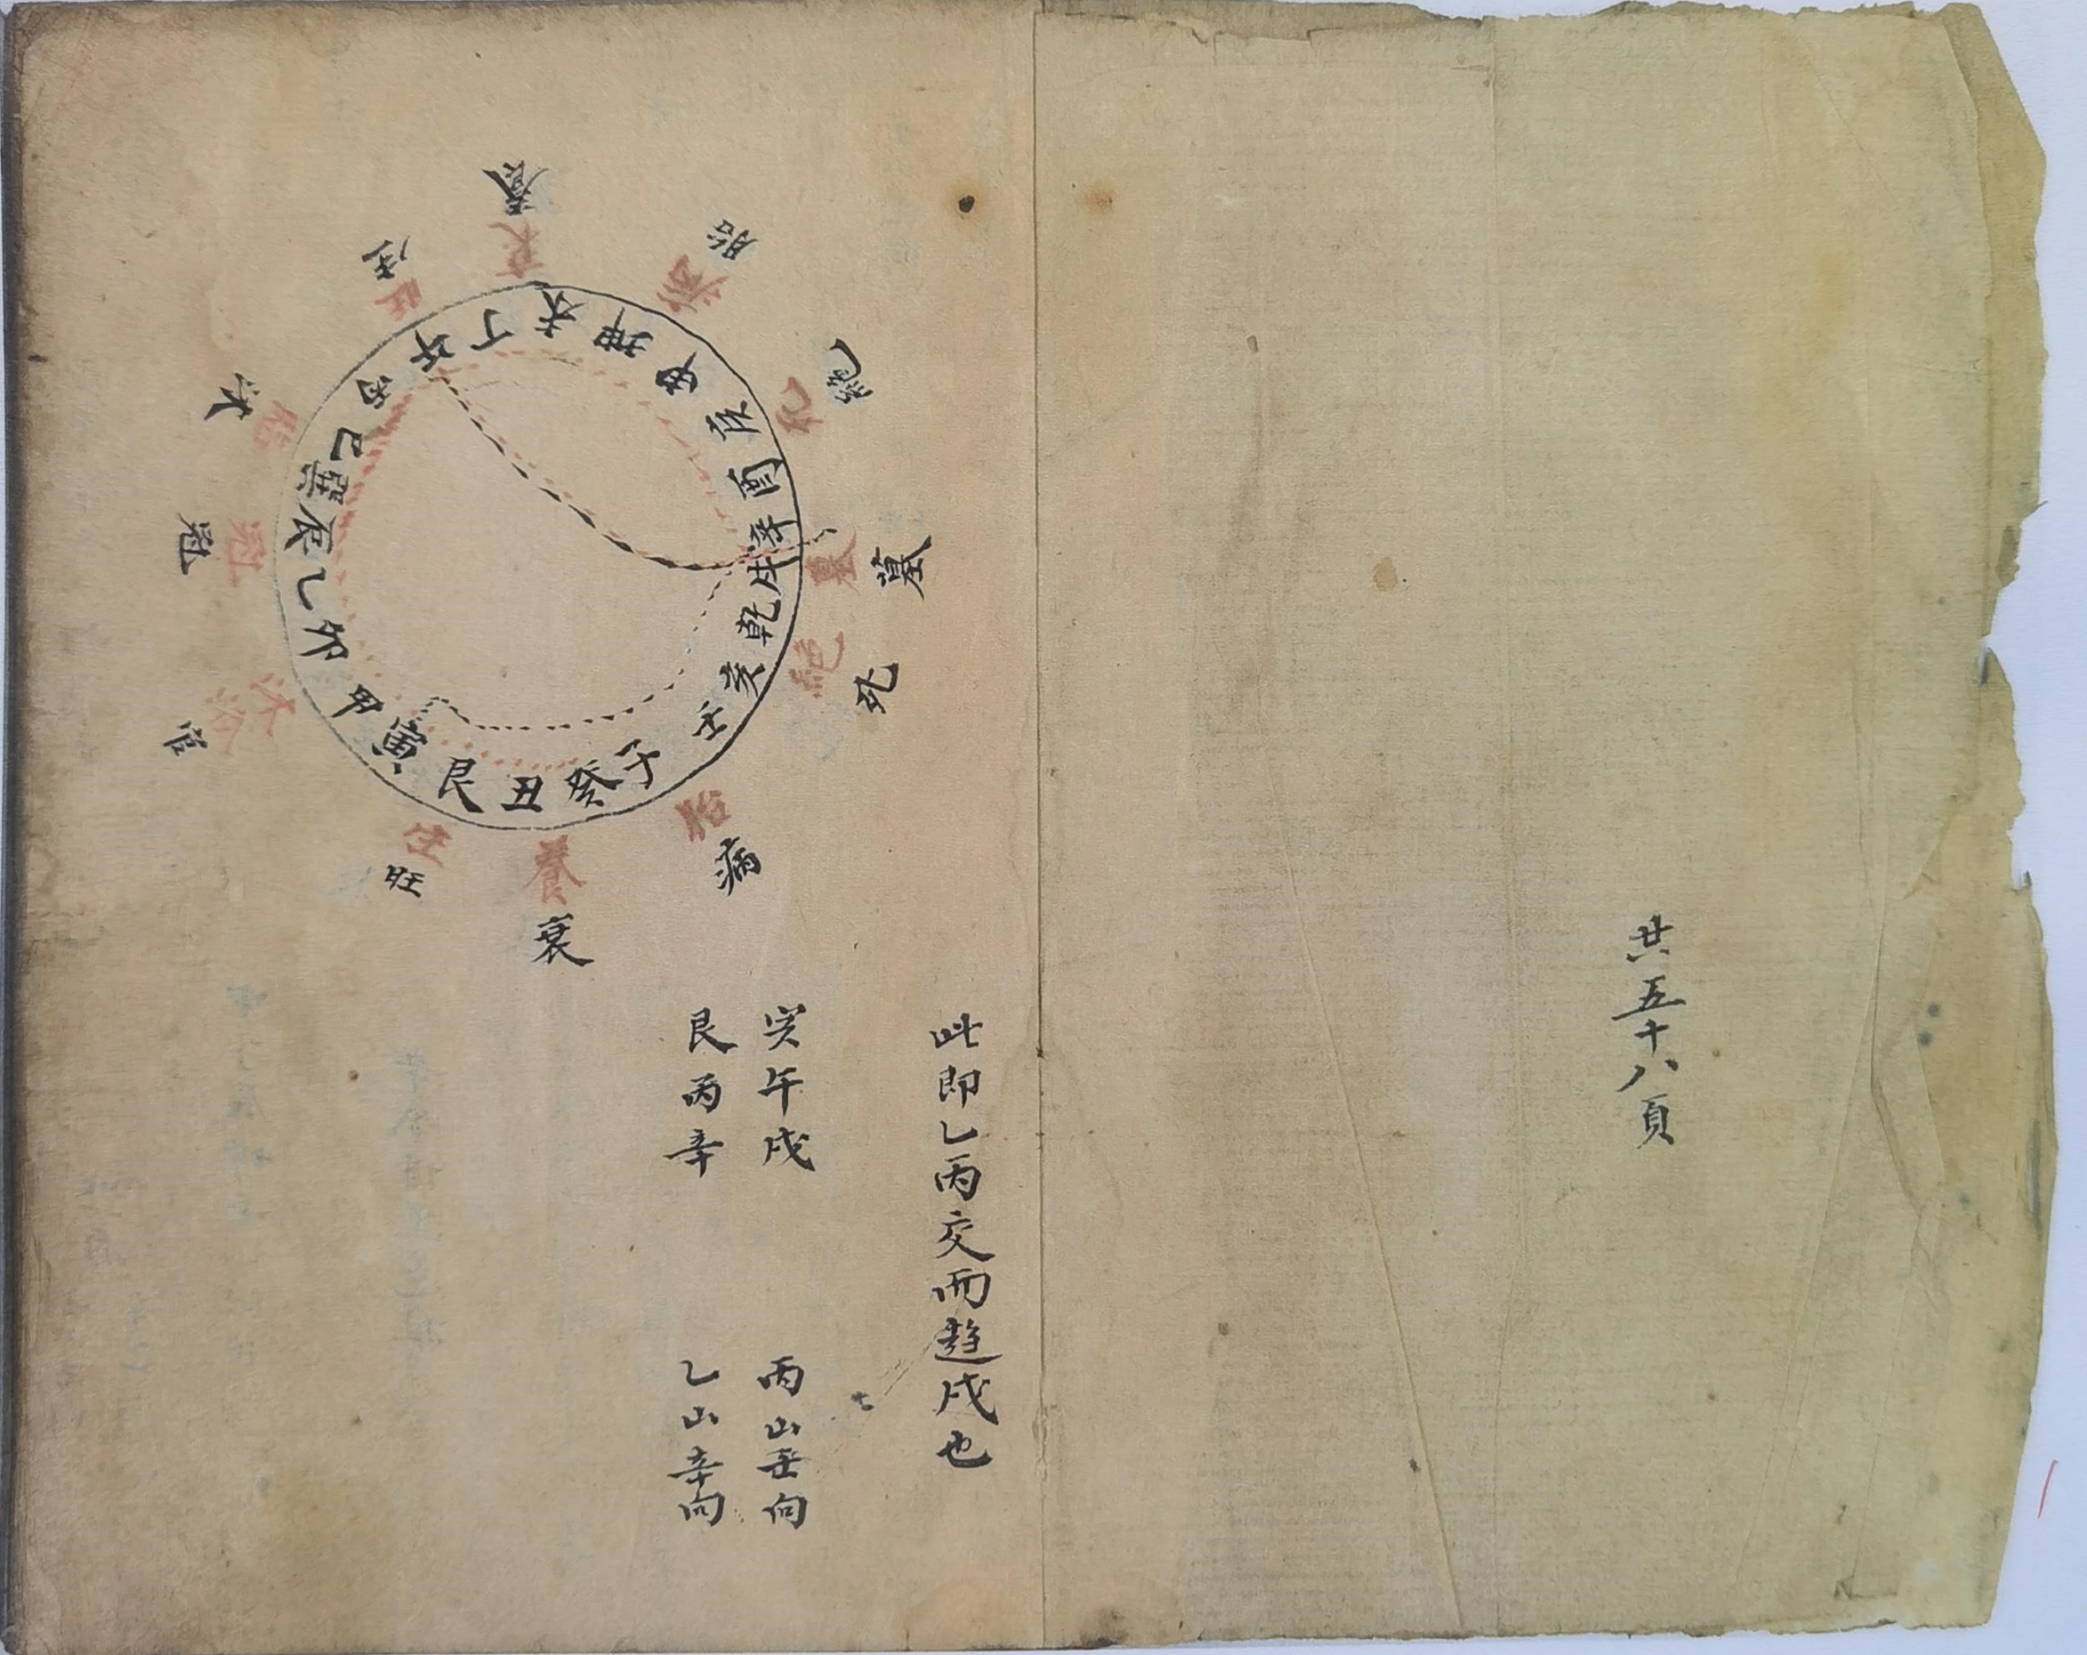 共五十八頁
此即乙丙交而趋戌也
午戌
丙山壬向
艮丙辛
乙山辛向
養
胎
絶
墓
死
病
衰
旺
官
冠
沐
生
衰
病
死
墓
絶
胎
養
生
沐浴
冠
旺
午
丁
未
坤
申
庚
酉
辛
戌
乾
亥
壬
子
癸
丑
艮
寅
甲
卯
乙
辰
巽
巳
丙